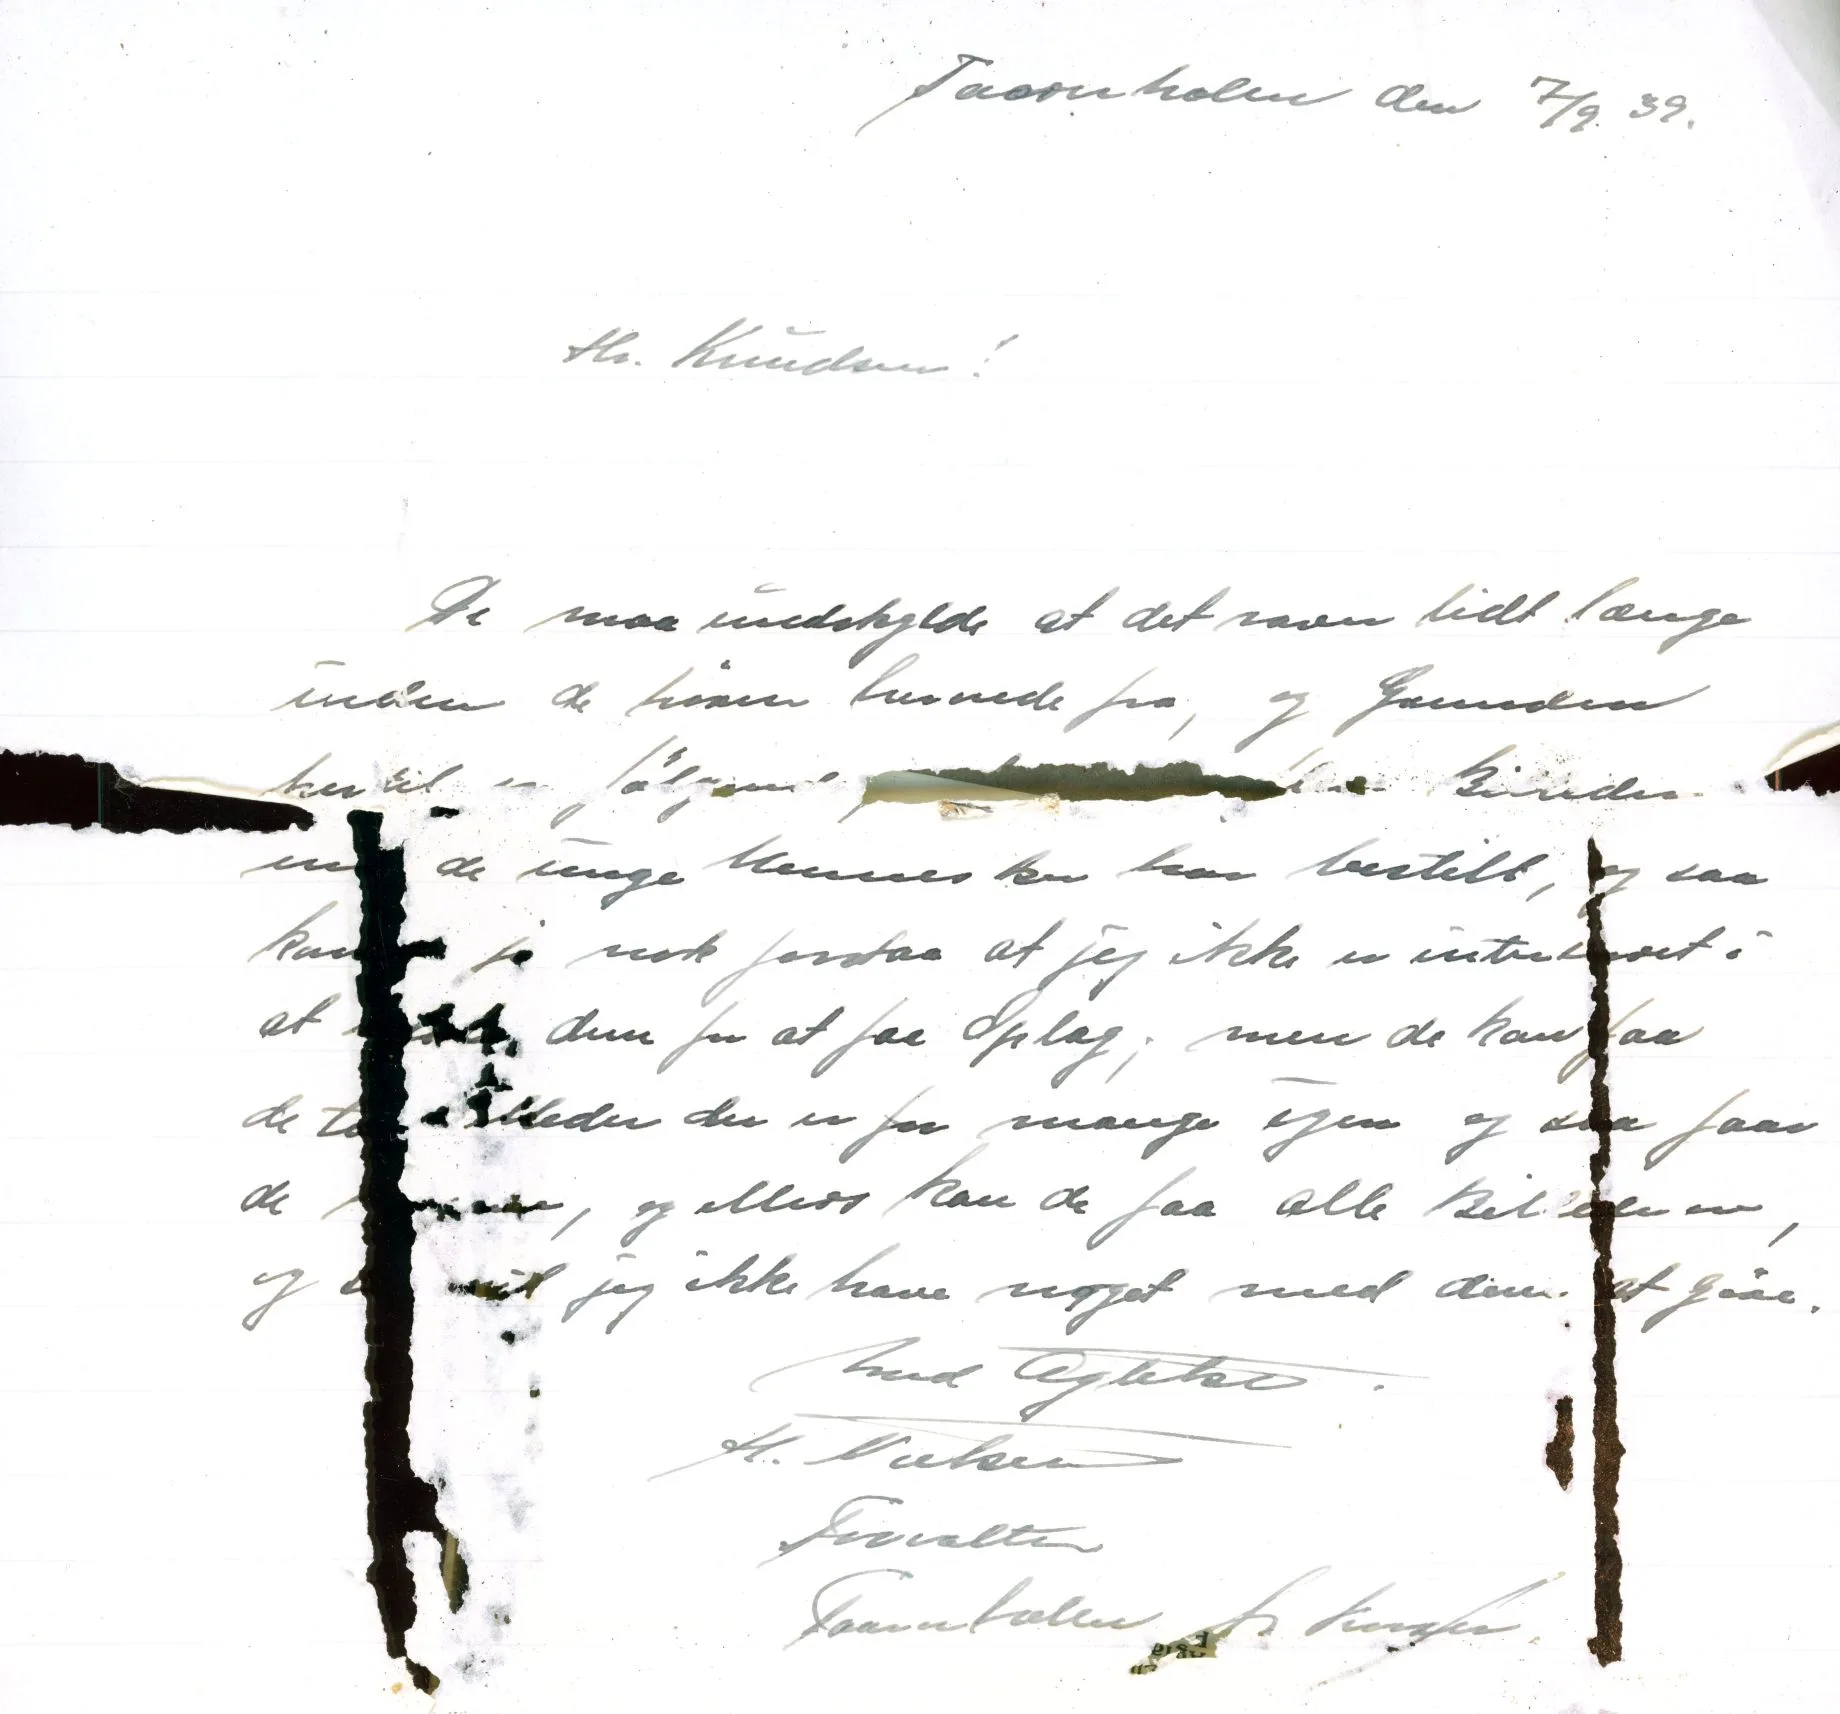 Taarnholm den 7/9. 39.
Hr. Knudsen!
De maa undskylde at det varer lidt længe
inden de hører hernede fra, og Grunden
hertil er følgende
de unge Mennesker har bestilt, og saa
kan jo nok forstaa at jeg ikke er interesseret i
at dem for at faa Oplag, men de kan faa
de to Billeder der er for mange igen og saa faar
de, og ellers kan de faa alle Billederne,
og vil jeg ikke have noget med dem at Gøre.
Med Agtelse.
H. Nielsen
Forvalter
Taarnholm pr. Korsør.